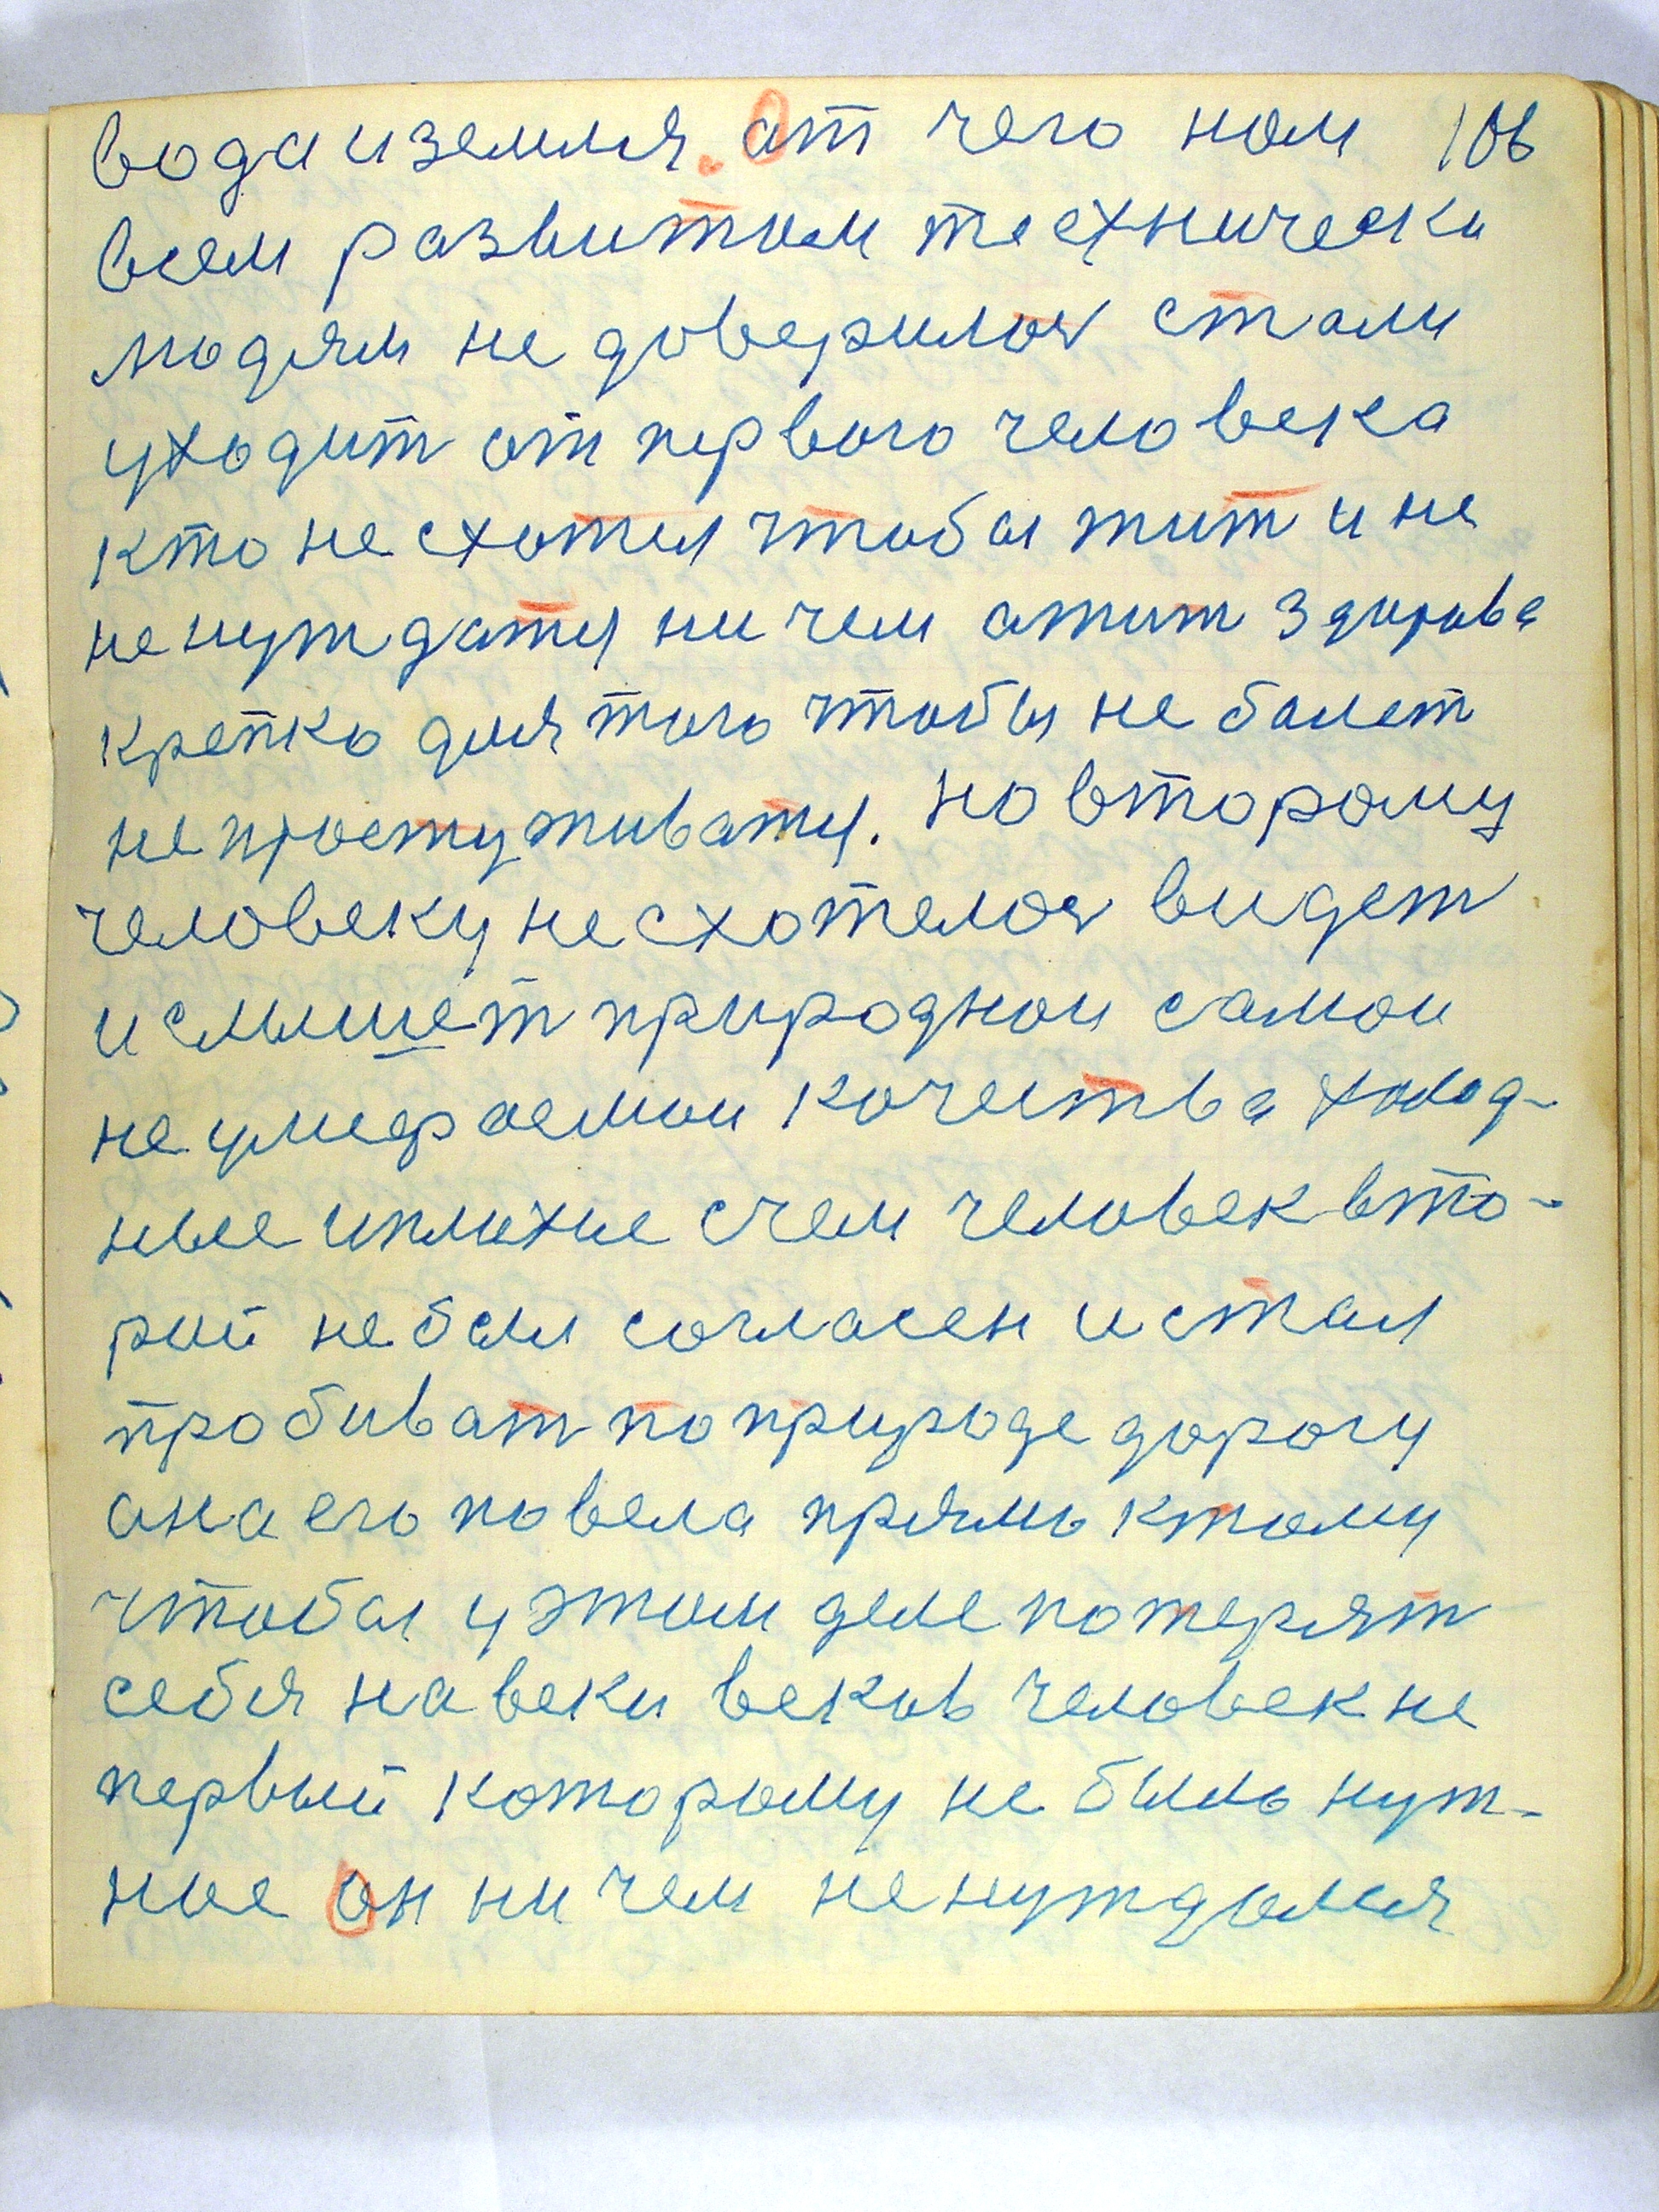 вода и земля. От чего нам 106
всем развитым техснически
людям не доверилос стали
уходит от первого человека
кто не схотел чтобы жит и не
не нуждатся ни чем а жит здорова
крепко для того чтобы не болет
не простуживатся. Но второму
человеку не схотелос видет
и слышет природнои самои
не умераемои качества холод-
ные и плохие с чем человек вто-
рой не был согласен и стал
пробиват по природе дорогу
ана его повела прямо к тому
чтобы у этом деле потерят
себя на веки веков человек не
первый которому не было нуж-
ное Он ни чем не нуждался